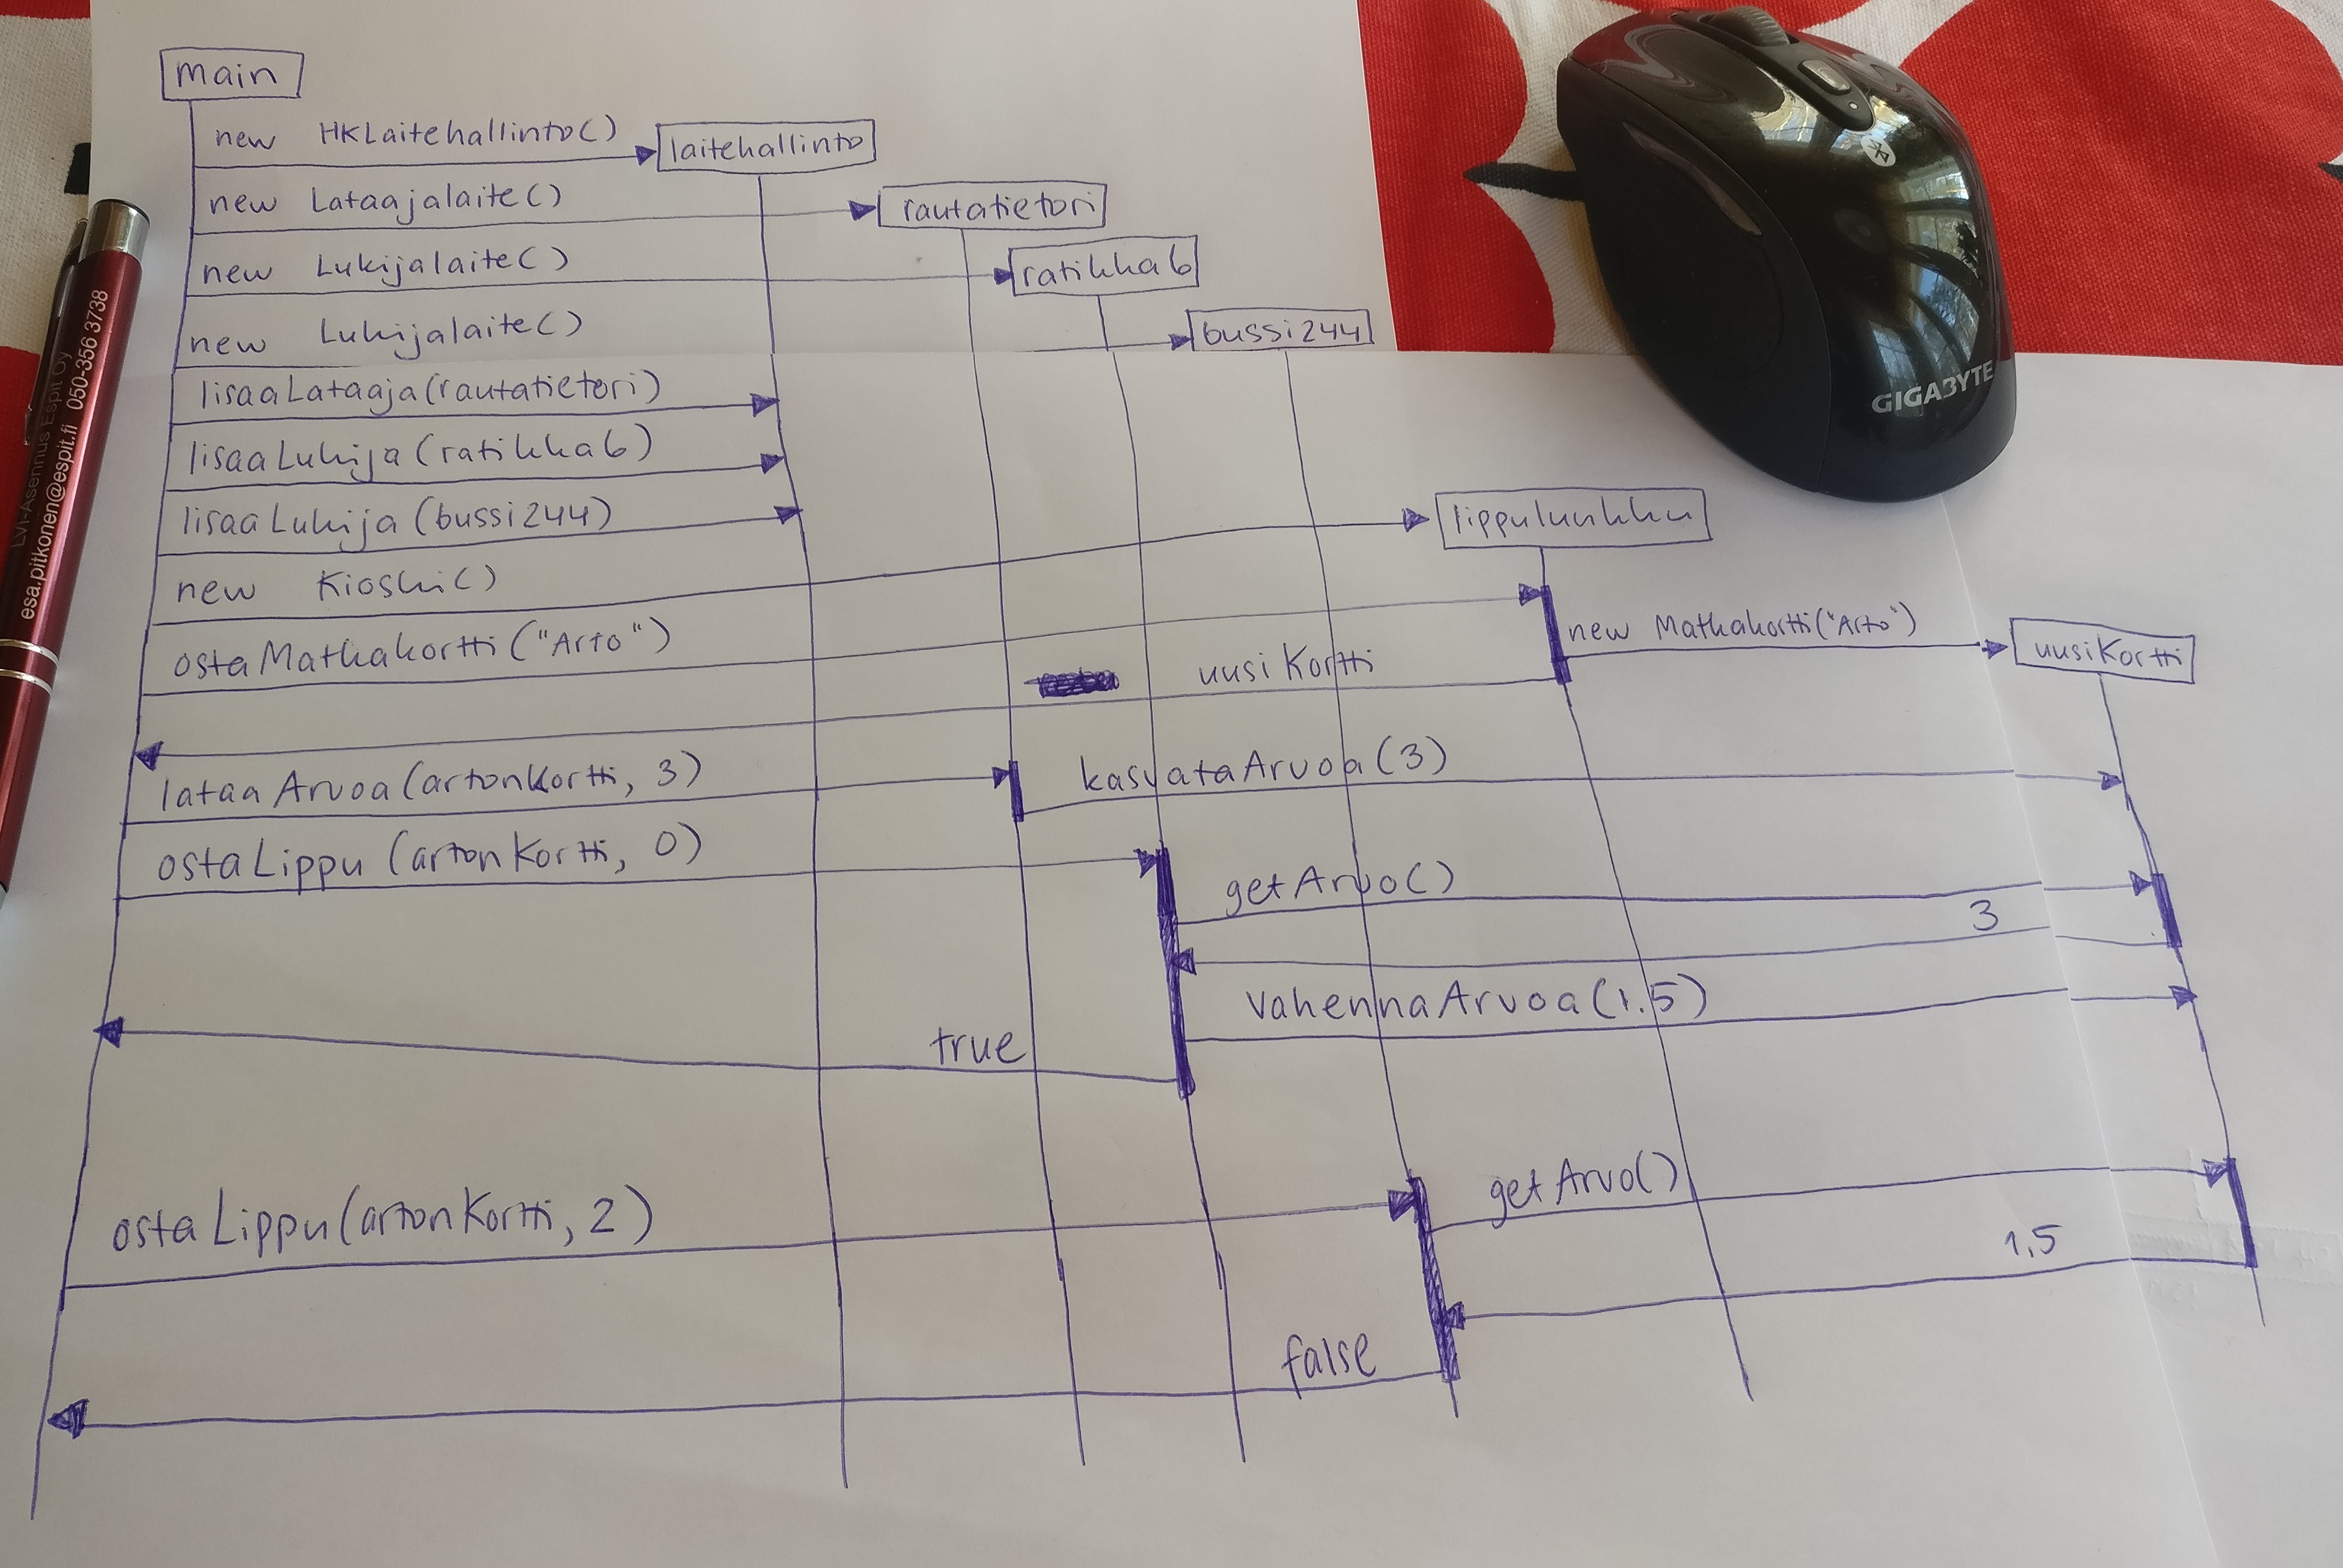 main
new HKLaitehallinto()
laitehallinto
new Lataajalaite()
rautatietori
new Lukijalaite()
ratikka6
new Lukijalaite()
bussi244
lisaaLataaja(rautatietori)
lisaaLukija(ratikka6)
lisaaLukija(bussi244)
lippuluukku
new Kioski()
ostaMatkakortti("Arto")
new Matkakortti("Arto")
uusiKortti
uusiKortti
lataaArvoa(artonKortti, 3)
kasvataArvoa(3)
ostaLippu(artonKortti, 0)
getArvo()
3
vahennaArvoa(1.5)
true
ostaLippu(artonKortti, 2)
getArvo()
1,5
false
GIGABYTE
LVI-Asennus Espit Oy
esa.pitkonen@espit.fi 050-356 3738